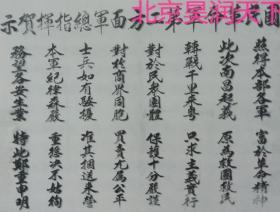 北京昱润天
國民革命軍第二方面軍總指揮賀示
照得本部各軍 富於革命精神
此次南昌起義 原為救國救民
轉戰千里來粤 只求主義實行
對於民眾團體 保護十分
對於商界同胞 買賣尤属公平
士兵如有騷擾 准其捆送來營
本軍紀律森嚴 重懲决不姑徇
務望各安生業 特此鄭重申明